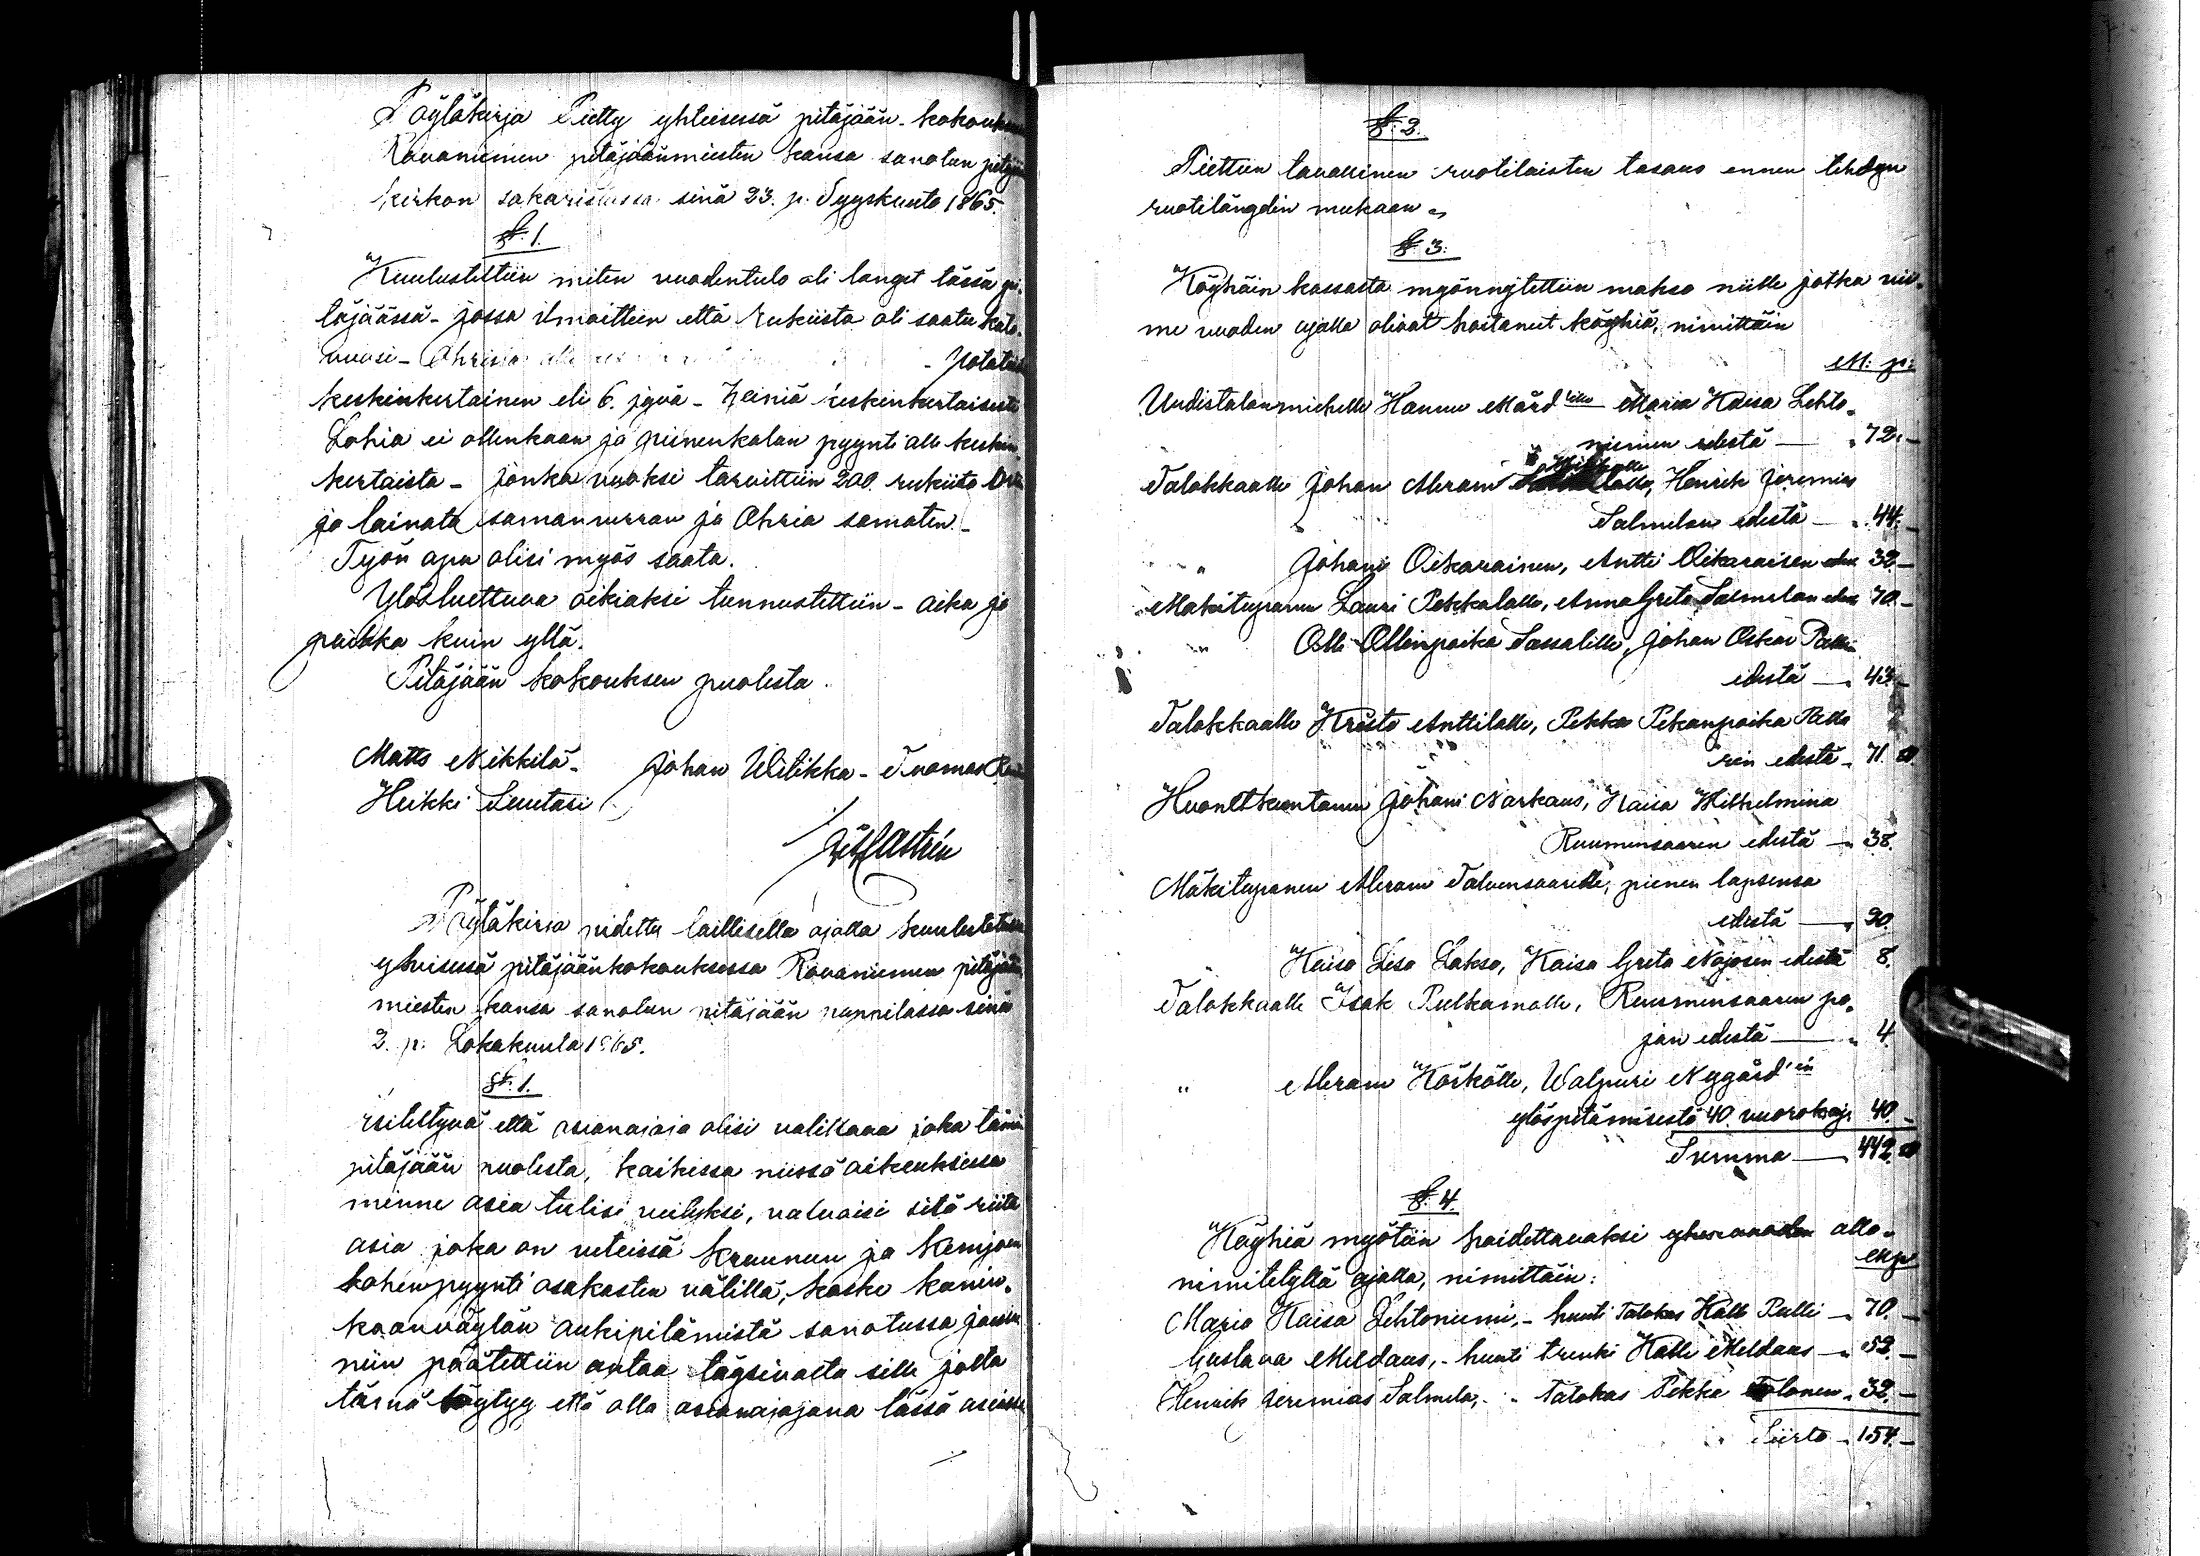 Pöytäkirja Pietty yhteisessä pitäjään-kokouksessa
Rovaniemen pitäjäänmiesten kansa sanotun pitäjän
kirkon sakaristiassa sinä 23. p. Syyskuuta 1865.
§. 1.
Kuulusteltiin miten vuodentulo oli langet tässä pi-
täjäässä - jossa ilmoittiin että Rukiista oli saatu kato-
vuosi - Ohria oli
- Potatia
keskinkertainen eli 6. jyvä - Heiniä keskinkertaisesti
Lohia ei ollenkaan ja pienenkalan pyynti alle keskin
kertaista - jonka vuoksi tarvittiin 200. rukiita
ja lainata samanverran ja Ohria samaten. -
Työn apu olisi myös saata.
Ylösluettuva oikiaksi tunnustettiin - aika ja
paikka kuin yllä.
Pitäjään kokouksen puolesta.
Matts Nikkilä - Johan Wilikka - Tuomas
Heikki Luutasi
Pöytäkirja pidetty laillisella ajalla kuulutetussa
yhteisessä pitäjäänkokouksessa Rovaniemen pitäjään
miesten kansa sanotun pitäjään pappilassa sinä
2. p: Lokakuuta 1865.
§. 1.
esiteltynä että asianajaja olisi valittava joka tämän
pitäjään puolesta, kaikissa niissä oikeuksissa
minne asia tulisi veityksi, valvaisi sitä riita
asia joka on veteissä kruunun ja Kemijoen
lohenpyynti osakasten välillä, koske kunin-
kaanväylän aukipitämistä sanotussa joessa
niin päätettiin antaa täysivalta sille jolta
täsnä löytyy että olla asianajajana tässä asiassa
§. 2.
Piettiin tavallinen ruotilaisten tasaus ennen tehdyn
ruotilängdin mukaan.
§ 3.
Köyhäin kassasta myönnytettiin makso niille jotka vii-
me vuoden ajalla olivat hoitaneet köyhiä, nimittäin
M: p:
Uudistalonmiehelle Hannu Mård'ille Maria Kaisa Lehto-
niemen edestä — „ 72. —
Talokkaalle Johan Abram Henrik Jeremias
Salmelan edestä — „ 44. —
„ Johani Oikarainen, Antti Oikaraisen 32 —
Mäkitupanen Lauri Pekkalalle, AnnaGreta Salmelan 70. —
„ Olli Ollinpoika Sassalille, Johan Oskar
edestä — „ 43. —
Talokkaalle Kristo Anttilalle, Pekka Pekanpoika
rin edestä „ 71.
Huonetkuntanen Johani Narkaus, Kaisa Wilhelmina
Ruumensaaren edestä — „ 38.
Mäkitupanen Abram Talvensaarelle, pienen lapsensa
edestä — „ 20.
Kaisa Lisa Lakso, Kaisa Greta Najosen edestä 8.
Talokkaalle Isak Pulkamalle, Ruumensaaren po-
jan edestä — „ 4.
„ Abram Körkölle, Walpuri Nygård'in
ylöspitämisestä 40. vuorokaj. 40. —
Summa — 442.
§. 4.
Köyhiä myötiin hoidettavaksi yhen vuoden alla-
nimitetyllä ajalla, nimittäin:
Maria Kaisa Lehtoniemi, - huuti Talokas Kalle Pulli — 70. —
Gustava Meldaus, - huuti trenki Kalle Meldaus — „ 52. —
Henrik Jeremias Salmela, - „ Talokas Pekka Tolonen „ 32. —
Siirto — 154. —